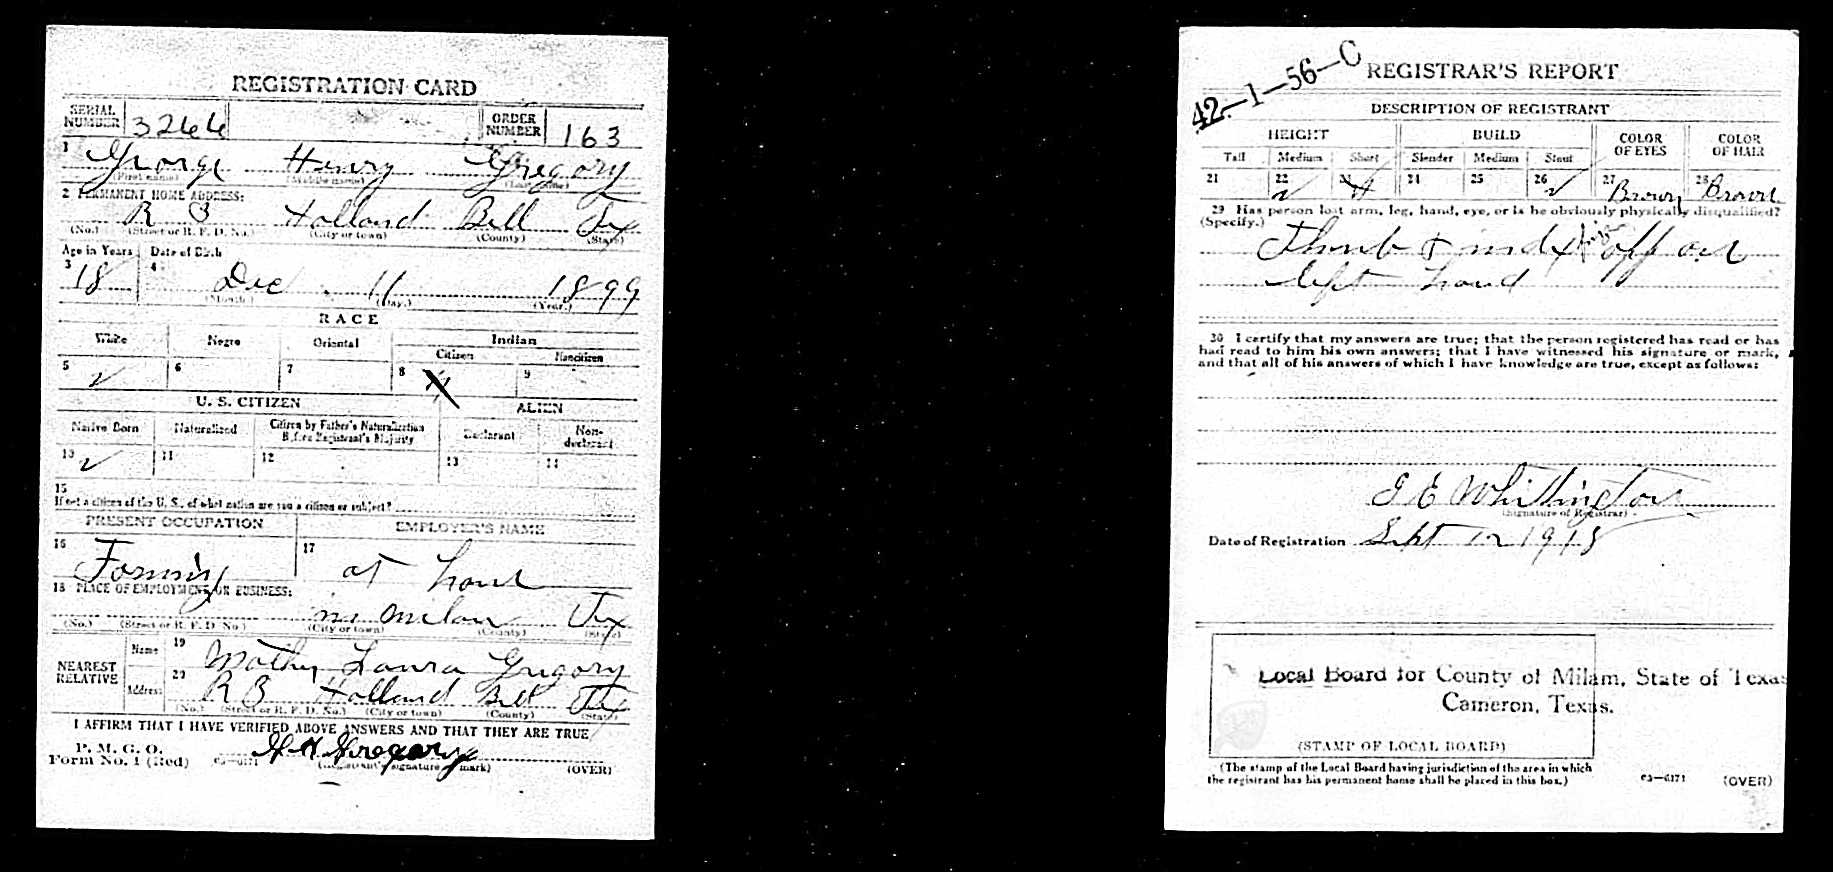 REGISTRATION CARD
SERIAL NUMBER 3266 ORDER NUMBER 163
1 George Henry Gregory
(First name) (Middle name) (Last name)
2 PERMANENT HOME ADDRESS:
R 3 Holland Bell Tex
(No.) (Street or R. F. D. No.) (City or town) (County) (State)
Age in Years Date of Birth
3 18 4 Dec 11 1899
(Month.) (Day.) (Year.)
RACE
White Negro Oriental Indian
Citizen Noncitizen
5 ✓ 6 7 8 9
U. S. CITIZEN ALIEN
Native Born Naturalized Citizen by Father's Naturalization Before Registrant's Majority Declarant Non-declarant
10 ✓ 11 12 13 14
15
If not a citizen of the U. S., of what nation are you a citizen or subject?
PRESENT OCCUPATION EMPLOYER'S NAME
16 Farming 17 at home
18 PLACE OF EMPLOYMENT OR BUSINESS:
Milam Tex
(No.) (Street or R. F. D. No.) (City or town) (County) (State)
NEAREST RELATIVE Name 19 Mother Laura Gregory
Address 20 R 3 Holland Bell Tex
(No.) (Street or R. F. D. No.) (City or town) (County) (State)
I AFFIRM THAT I HAVE VERIFIED ABOVE ANSWERS AND THAT THEY ARE TRUE
P. M. G. O.
Form No. 1 (Red) 03—6171 G H Gregory
(Registrant's signature or mark) (OVER)
42—1—56—C
REGISTRAR'S REPORT
DESCRIPTION OF REGISTRANT
HEIGHT BUILD COLOR OF EYES COLOR OF HAIR
Tall Medium Short Slender Medium Stout
21 22 ✓ 23 24 25 26 ✓ 27 Brown 28 Brown
29 Has person lost arm, leg, hand, eye, or is he obviously physically disqualified?
(Specify.)
Thumb & index finger off on
left hand
30 I certify that my answers are true; that the person registered has read or has
had read to him his own answers; that I have witnessed his signature or mark,
and that all of his answers of which I have knowledge are true, except as follows:
J E Whittington
(Signature of Registrar)
Date of Registration Sept 12 1918
Local Board for County of Milam, State of Texas
Cameron, Texas.
(STAMP OF LOCAL BOARD)
(The stamp of the Local Board having jurisdiction of the area in which
the registrant has his permanent home shall be placed in this box.)
03—6171 (OVER)